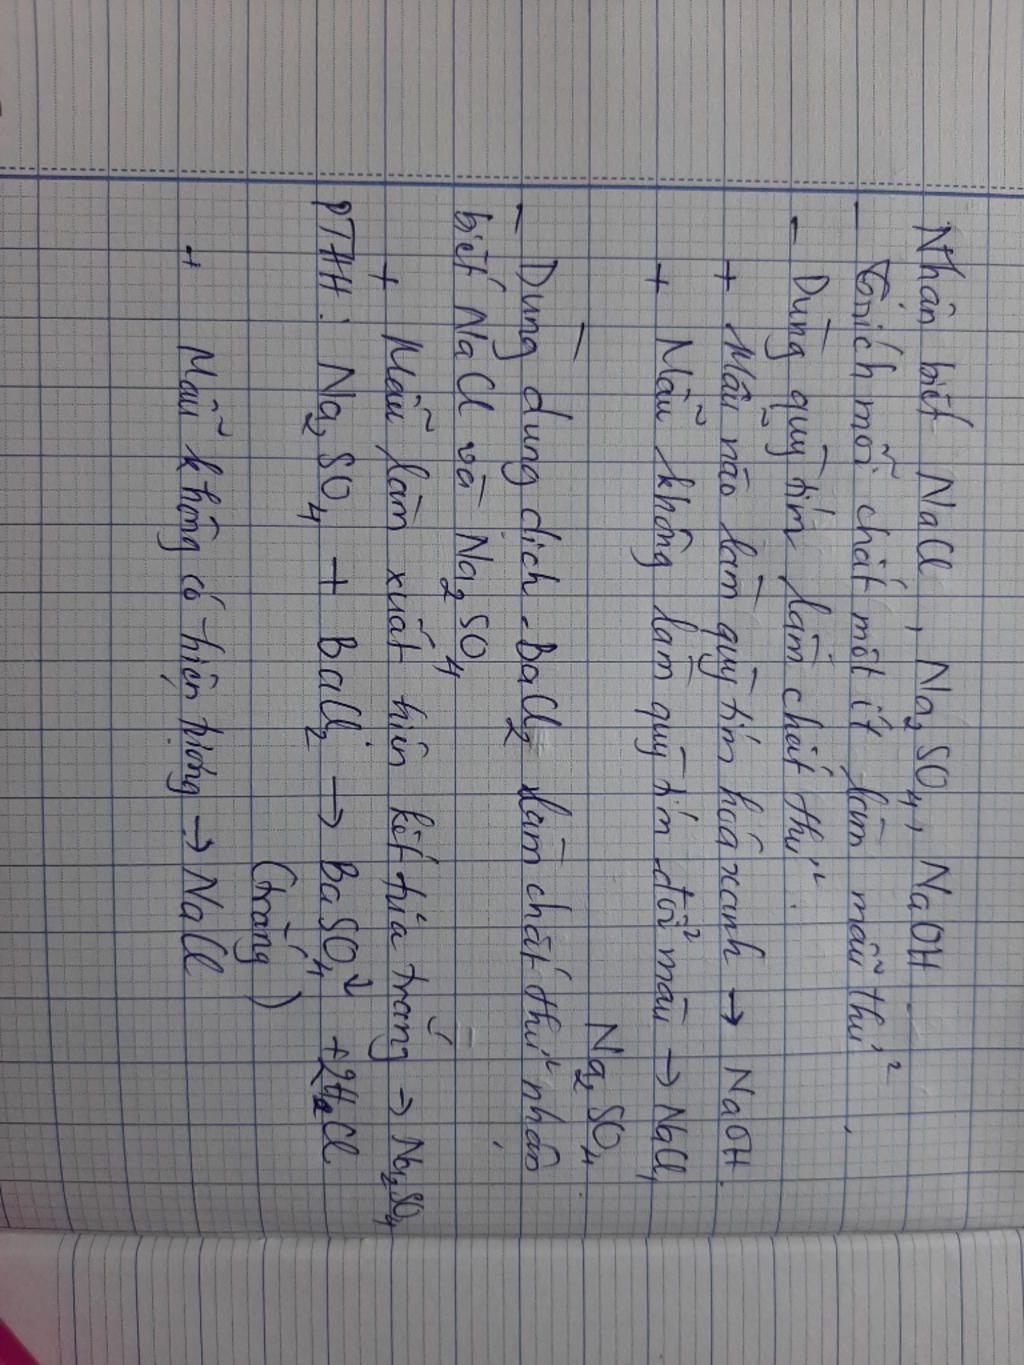 Nhận biết NaCl, Na₂SO₄, NaOH
- Trích mỗi chất một ít làm mẫu thử.
- Dùng quỳ tím làm chất thử.
+ Mẫu nào làm quỳ tím hóa xanh → NaOH.
+ Mẫu không làm quỳ tím đổi màu → NaCl,
Na₂SO₄.
- Dùng dung dịch BaCl₂ làm chất thử nhân
biết NaCl và Na₂SO₄
+ Mẫu làm xuất hiên kết tủa trắng → Na₂SO₄
PTHH: Na₂SO₄ + BaCl₂ → BaSO₄ + 2NaCl
(trắng)
+ Mẫu không có hiện tượng → NaCl